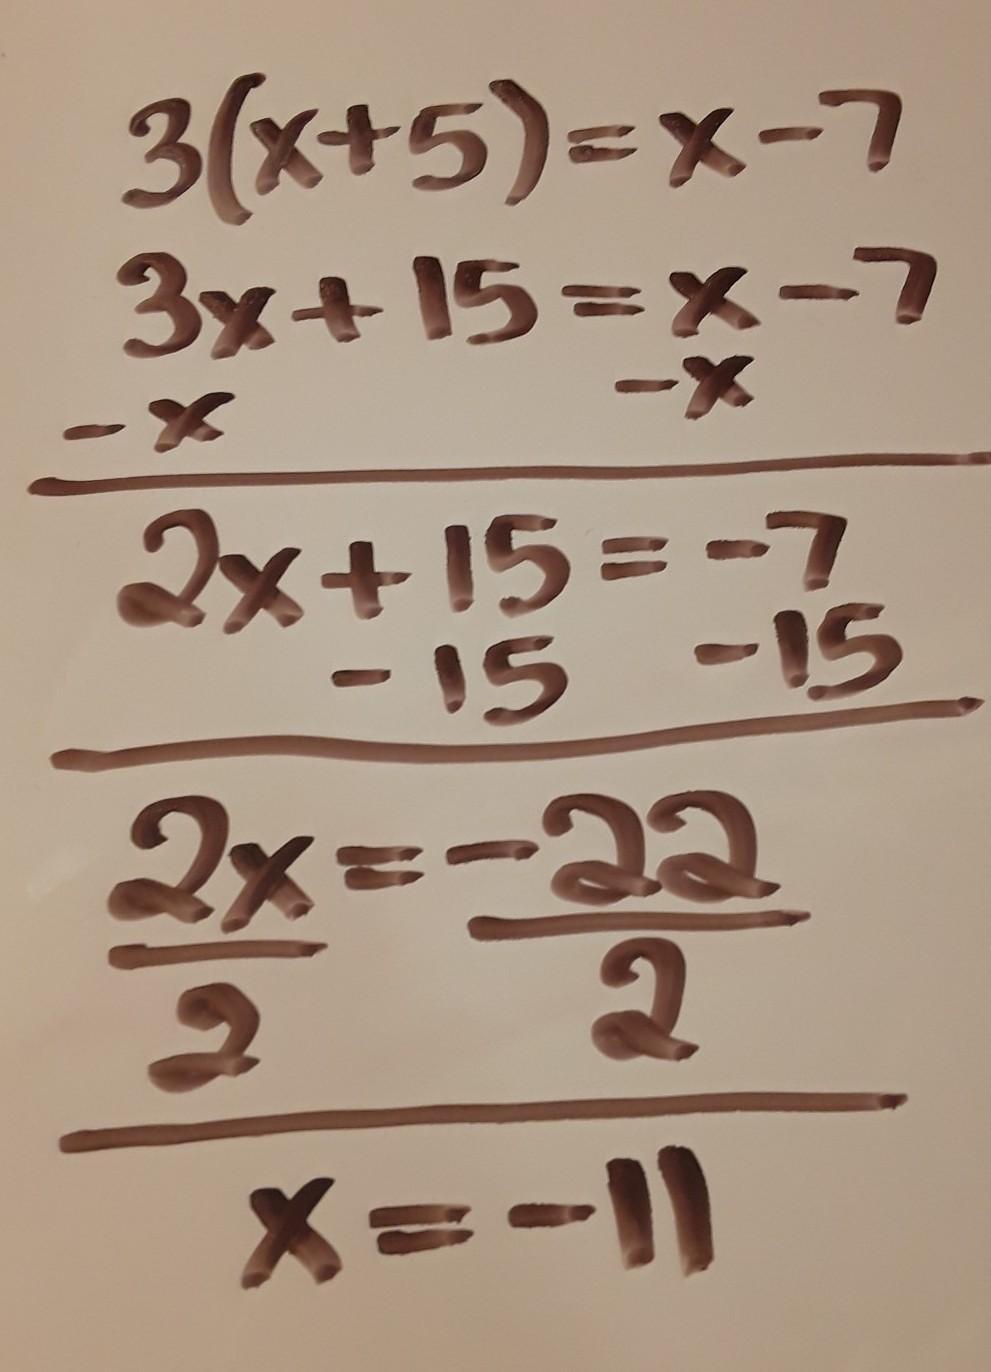 3(x+5)=x-7
3x+15=x-7
-x -x
2x+15=-7
-15 -15
2x=-22
2 2
x=-11